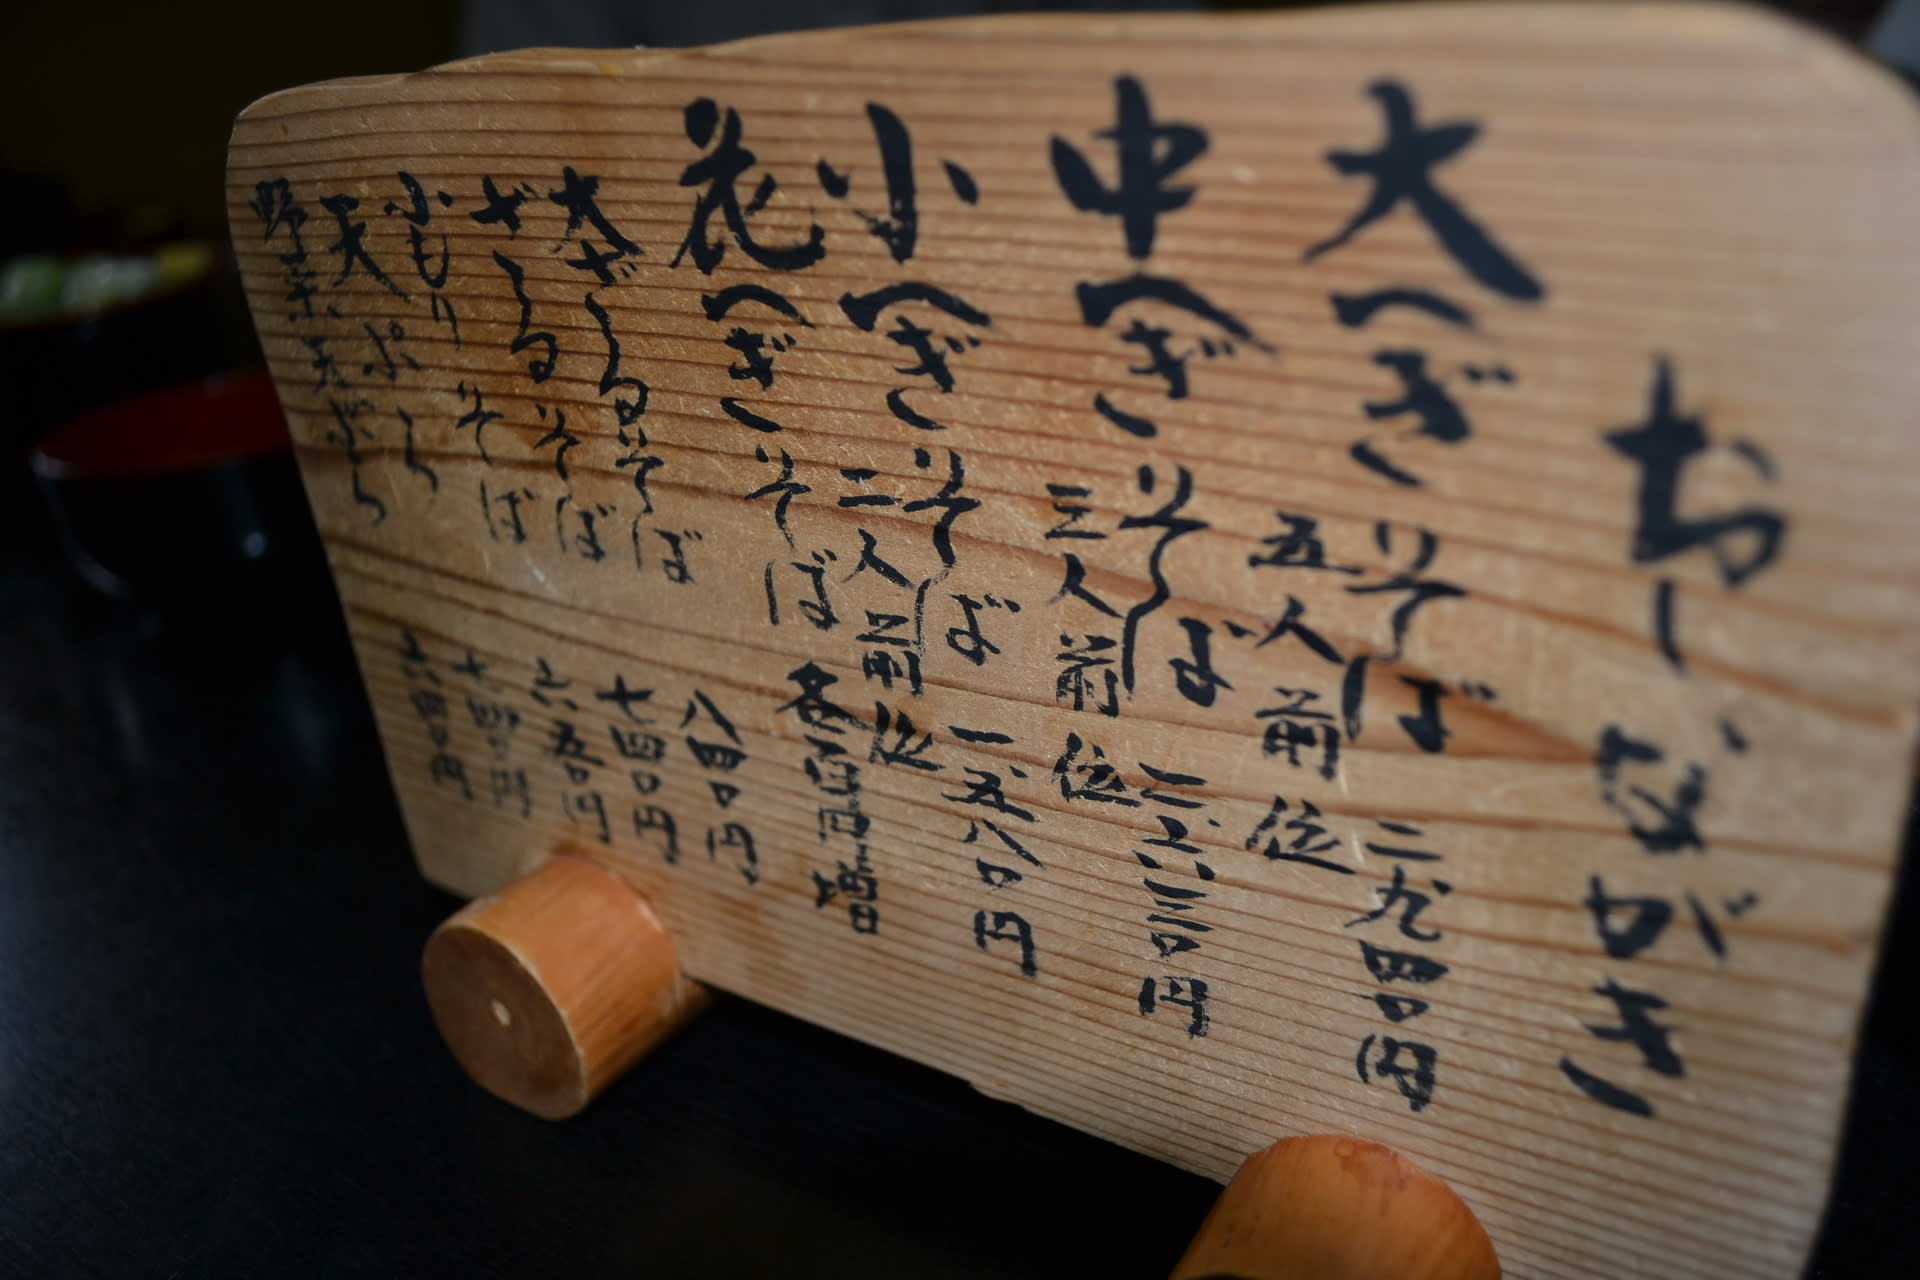 おしながき
大へぎそば 五人前位 二、九四〇円
中へぎそば 三人前位 二、六三〇円
小へぎそば 二人前位 一、五八〇円
花へぎそば 各百円増
大ざるそば 八四〇円
ざるそば 七四〇円
小もりそば 六五〇円
天ぷら 八四〇円
野菜天ぷら 六四〇円